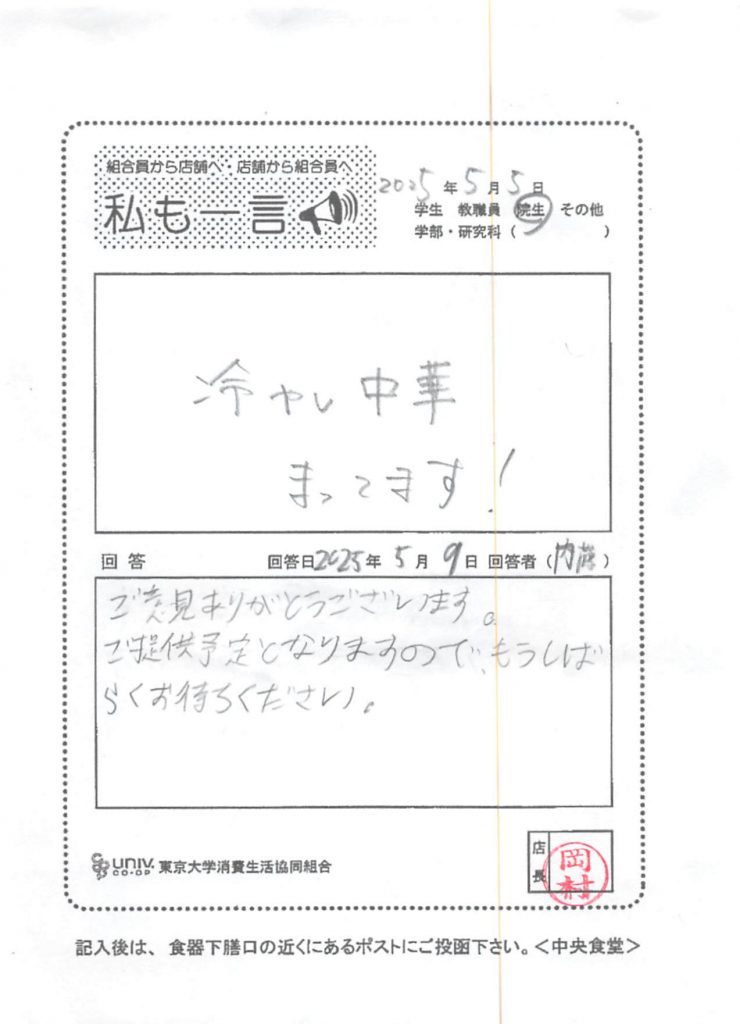 組合員から店舗へ・店舗から組合員へ
私も一言
2025年5月5日
学生 教職員 院生 その他
学部・研究科（ ）
冷やし中華
まってます！
回答 回答日2025年5月9日 回答者（内藤）
ご意見ありがとうございます。
ご提供予定となりますので、もうしば
らくお待ちください。
UNIV. CO-OP 東京大学消費生活協同組合
店長
岡村
記入後は、食器下膳口の近くにあるポストにご投函下さい。＜中央食堂＞